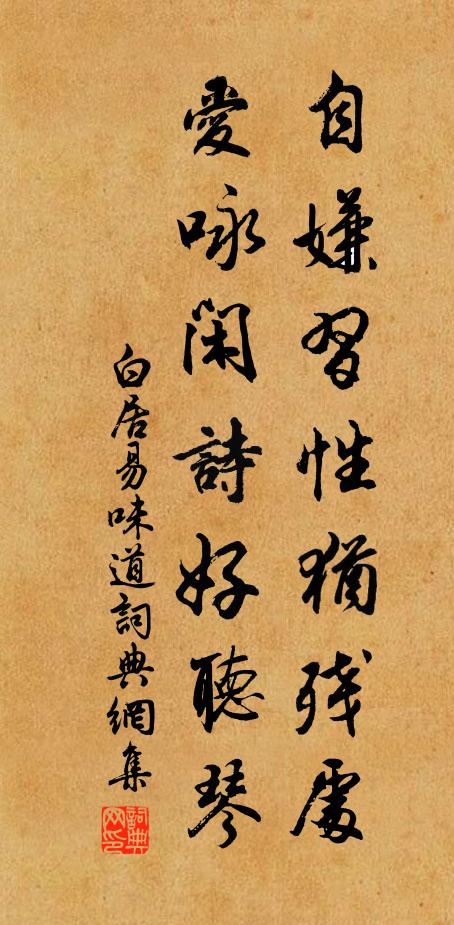 自嫌習性猶殘處
愛咏閑詩好聽琴
白居易味道詞典網集
詞典网印